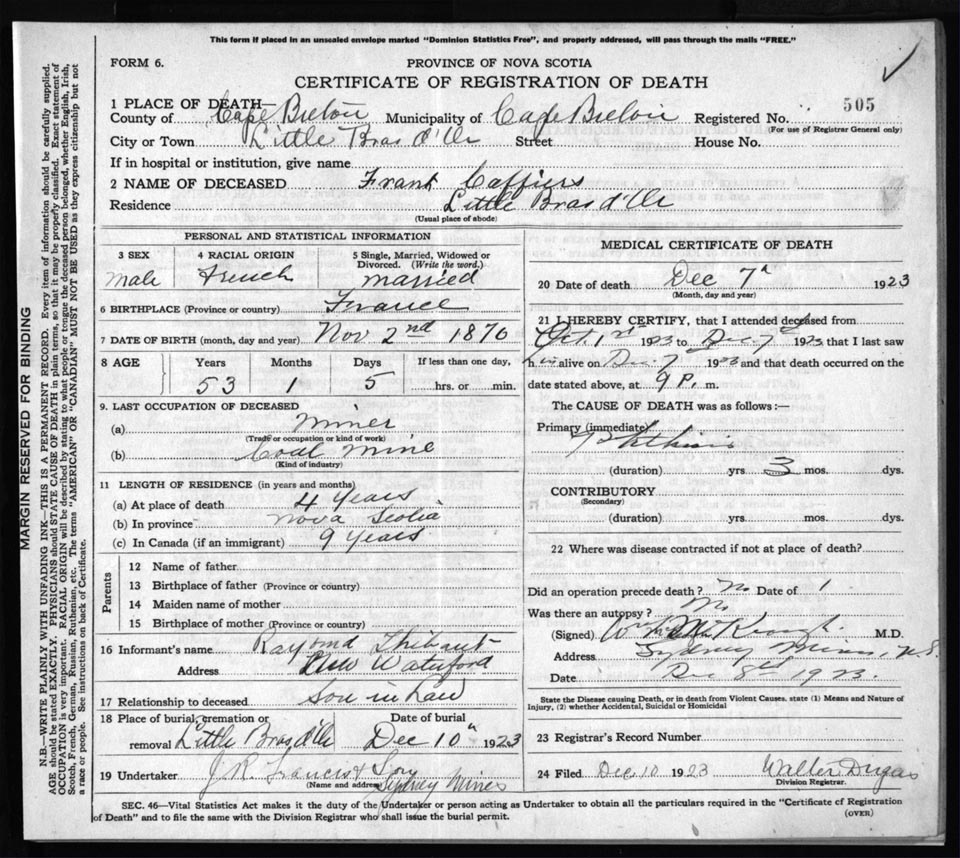 This form if placed in an unsealed envelope marked "Dominion Statistics Free", and properly addressed, will pass through the mails "FREE."
FORM 6.
PROVINCE OF NOVA SCOTIA
CERTIFICATE OF REGISTRATION OF DEATH
505
1 PLACE OF DEATH—
County of Cape Breton Municipality of Cape Breton Registered No.
(For use of Registrar General only)
City or Town Little Bras d'Or Street House No.
If in hospital or institution, give name
2 NAME OF DECEASED Frank Caffiers
Residence Little Bras d'Or
(Usual place of abode)
PERSONAL AND STATISTICAL INFORMATION
3 SEX 4 RACIAL ORIGIN 5 Single, Married, Widowed or Divorced. (Write the word.)
Male French married
6 BIRTHPLACE (Province or country) France
7 DATE OF BIRTH (month, day and year) Nov 2nd 1870
8 AGE Years Months Days If less than one day,
53 1 5 hrs. or min.
9. LAST OCCUPATION OF DECEASED
(a) Miner
(Trade or occupation or kind of work)
(b) Coal Mine
(Kind of industry)
11 LENGTH OF RESIDENCE (in years and months)
(a) At place of death 4 years
(b) In province Nova Scotia
(c) In Canada (if an immigrant) 9 years
Parents
12 Name of father
13 Birthplace of father (Province or country)
14 Maiden name of mother
15 Birthplace of mother (Province or country)
16 Informant's name Raymd Thibaut
Address New Waterford
17 Relationship to deceased Son in Law
18 Place of burial, cremation or Date of burial
removal Little Bras d'Or Dec 10th 1923
19 Undertaker J.R. Francis & Son
(Name and address) Sydney Mines
MEDICAL CERTIFICATE OF DEATH
20 Date of death Dec 7th 1923
(Month, day and year)
21 I HEREBY CERTIFY, that I attended deceased from
Oct. 1st 1923 to Dec. 7th 1923 that I last saw
him alive on Dec. 7 1923 and that death occurred on the
date stated above, at 9 P. m.
The CAUSE OF DEATH was as follows:—
Primary (immediate) Phthisis
(duration) yrs. 3 mos. dys.
CONTRIBUTORY
(Secondary)
(duration) yrs. mos. dys.
22 Where was disease contracted if not at place of death?
Did an operation precede death? No Date of
Was there an autopsy? No
(Signed) M.D.
Address Sydney Mines, N.S.
Date Dec 8th 1923.
State the Disease causing Death, or in death from Violent Causes. state (1) Means and Nature of Injury, (2) whether Accidental, Suicidal or Homicidal
23 Registrar's Record Number
24 Filed Dec 10 1923 Walter Dugas
Division Registrar.
SEC. 46—Vital Statistics Act makes it the duty of the Undertaker or person acting as Undertaker to obtain all the particulars required in the "Certificate of Registration
of Death" and to file the same with the Division Registrar who shall issue the burial permit.
(OVER)
MARGIN RESERVED FOR BINDING
N.B.—WRITE PLAINLY WITH UNFADING INK—THIS IS A PERMANENT RECORD. Every item of information should be carefully supplied.
AGE should be stated EXACTLY. PHYSICIANS should STATE CAUSE OF DEATH in plain terms, so that it may be properly classified. Exact statement of
OCCUPATION is very important. RACIAL ORIGIN will be described by stating to what people or tongue the deceased person belonged, whether English, Irish,
Scotch, French, German, Russian, Ruthenian, etc. The terms "AMERICAN" OR "CANADIAN" MUST NOT BE USED as they express citizenship but not
a race or people. See instructions on back of Certificate.